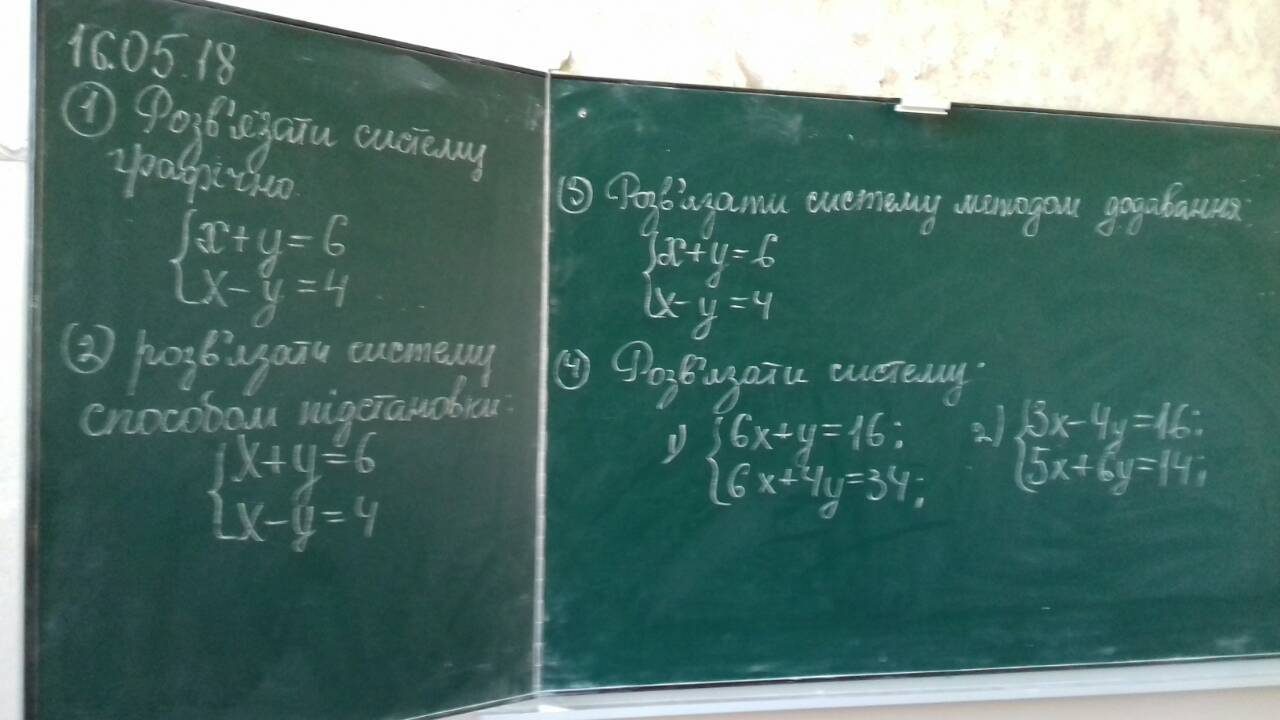 16.05.18
① Розв'язати систему
графічно.
{x+y=6
{x-y=4
② розв'язати систему
способом підстановки:
{x+y=6
{x-y=4
③ Розв'язати систему методом додавання:
{x+y=6
{x-y=4
④ Розв'язати систему:
1) {6x+y=16; 2) {3x-4y=16;
{6x+4y=34; {5x+6y=14;